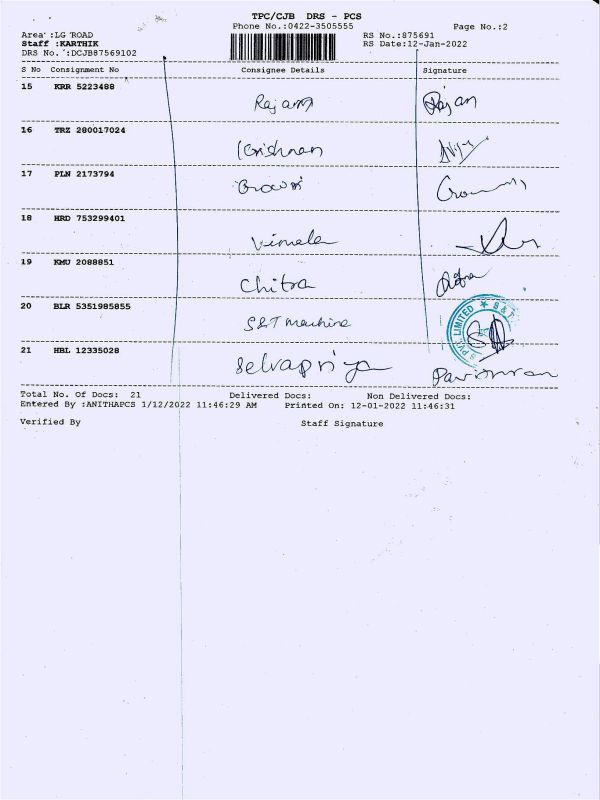 TPC/CJB DRS - PCS
Phone No.:0422-3505555 Page No.:2
Area :LG ROAD RS No.:875691
Staff :KARTHIK RS Date:12-Jan-2022
DRS No. :DCJB87569102
S No Consignment No Consignee Details Signature
15 KRR 5223488
Rajam Rajan
16 TRZ 280017024
Krishnan
17 PLN 2173794
Gowri
18 HRD 753299401
Vimala
19 KMU 2088851
Chitra
20 BLR 5351985855
S&T machine
S PVT. LIMITED ★ S & T
21 HBL 12335028
Selvapriya
Total No. Of Docs: 21 Delivered Docs: Non Delivered Docs:
Entered By :ANITHAPCS 1/12/2022 11:46:29 AM Printed On: 12-01-2022 11:46:31
Verified By Staff Signature